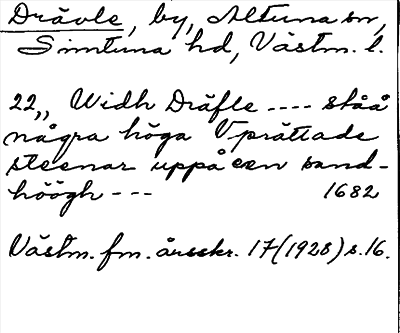 Drävle, by, Altuna sn,
Simtuna hd, Västm. l.
22,, Widh Dräfle ---- ståå
några höga Vprättade
steenar uppå een sand-
höögh --- 1682
Västm. fm. årsskr. 17 (1928) s. 16.